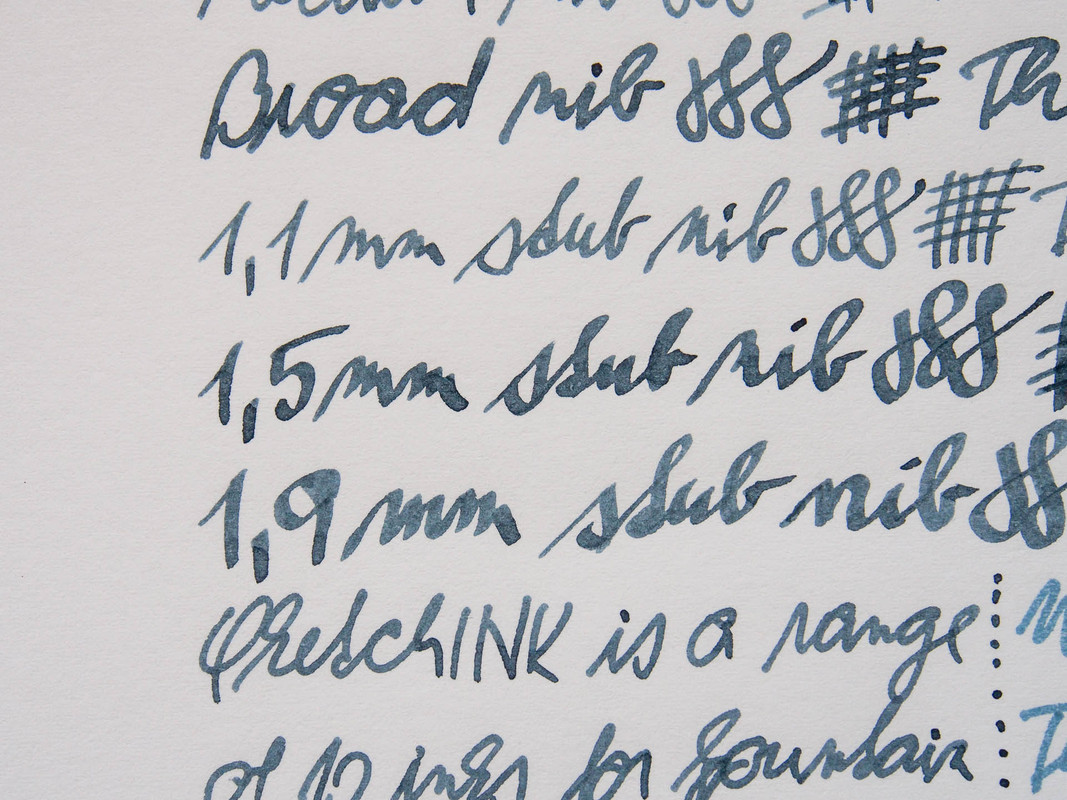 Broad nib
1,1 mm stub nib
1,5 mm stub nib
1,9 mm stub nib
KreschINK is a range
of 12 inks for fountain